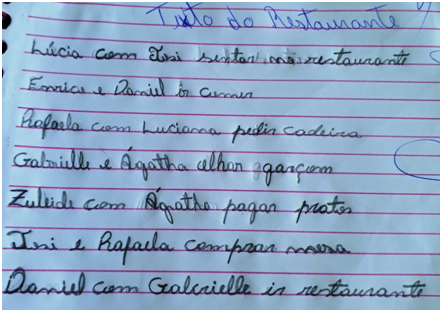 Texto do Restaurante
Lúcia com Isi sentar no restaurante
Enrico e Daniel ir comer
Rafaela com Luciana pedir cadeira
Gabrielle e Ágatha olhar garçom
Zuleide com Ágatha pagar prato
Isi e Rafaela comprar mesa
Daniel com Gabrielle ir restaurante